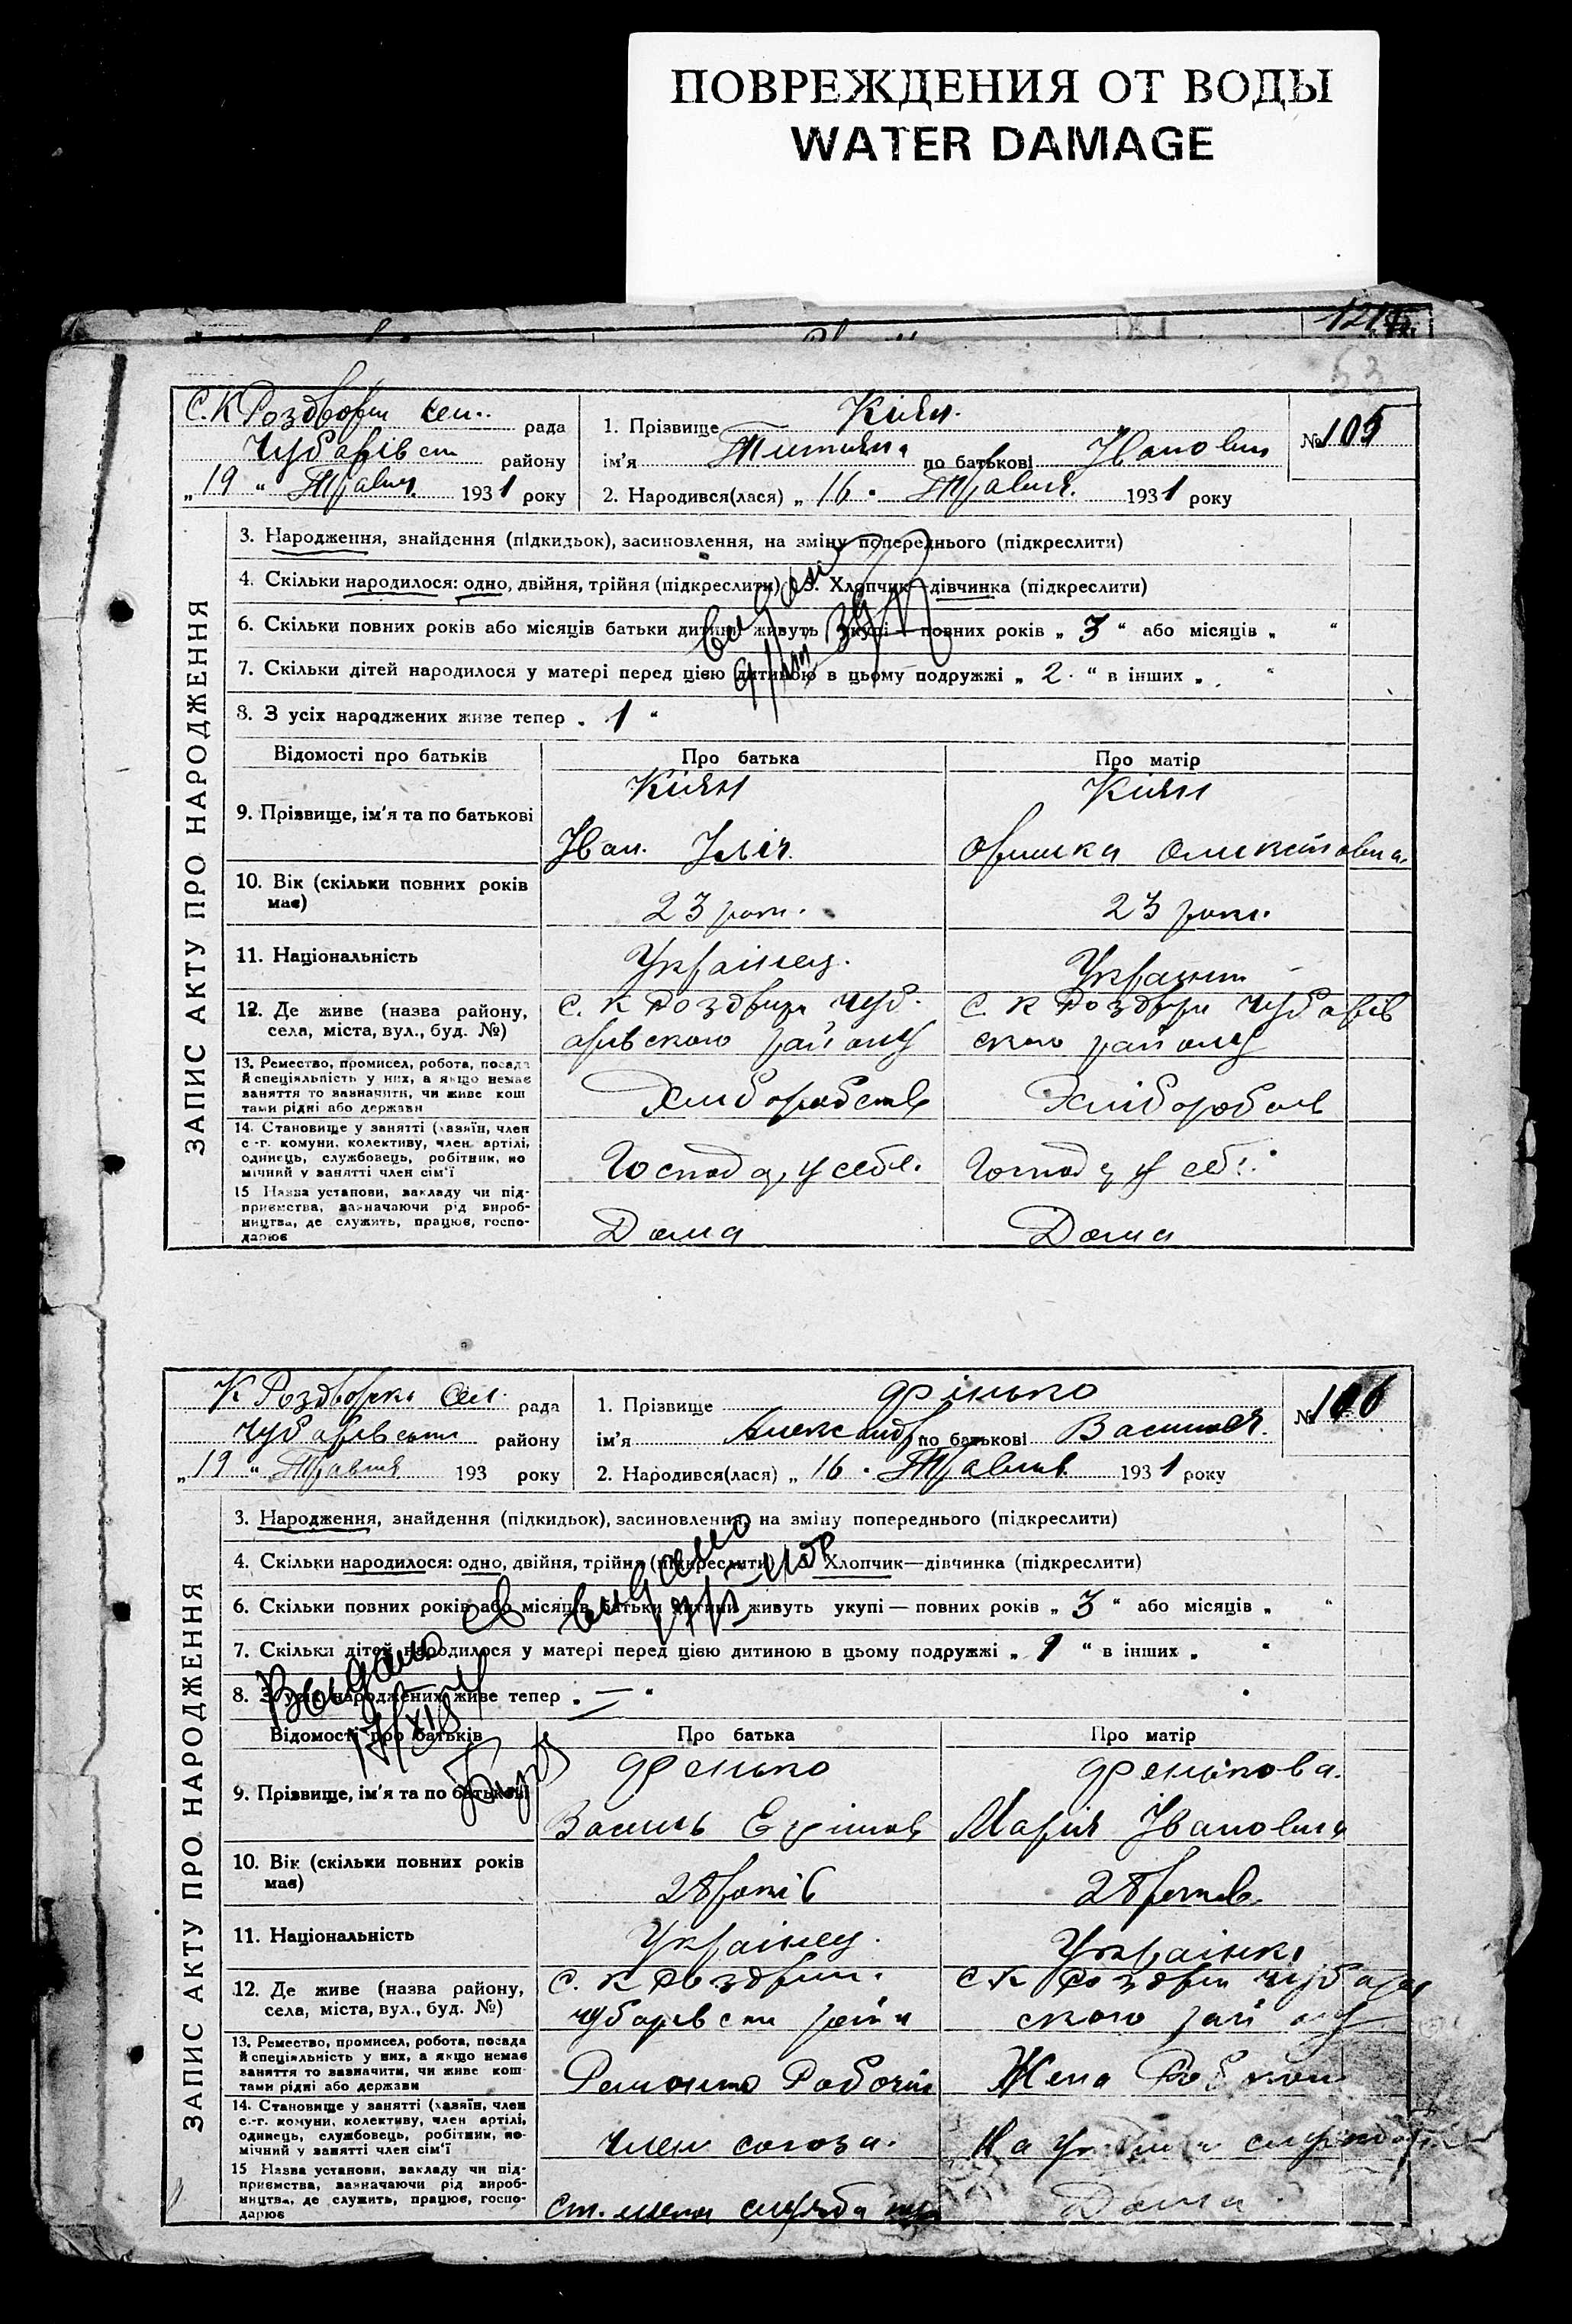 ПОВРЕЖДЕНИЯ ОТ ВОДЫ
WATER DAMAGE
53
ЗАПИС АКТУ ПРО НАРОДЖЕННЯ
С. К Роздори сел. рада
Чубарівськ району
„19“ Травня 1931 року
1. Прізвище Кіян.
ім'я Титяна по батькові Іванович
2. Народився(лася) „16. Травня. 1931 року
№ 105
3. Народження, знайдення (підкидьок), засиновлення, на зміну попереднього (підкреслити)
4. Скільки народилося: одно, двійня, трійня (підкреслити) 5. Хлопчик—дівчинка (підкреслити)
6. Скільки повних років або місяців батьки дитини живуть укупі — повних років „3“ або місяців „ “
7. Скільки дітей народилося у матері перед цією дитиною в цьому подружжі „2.“ в інших „ “
8. З усіх народжених живе тепер „1“
видано
Відомості про батьків Про батька Про матір
9. Прізвище, ім'я та по батькові
Кіян Кіян
Іван. Іліч.
10. Вік (скільки повних років має)
23 рок. 23 рок.
11. Національність
Українец. Украинк
12. Де живе (назва району, села, міста, вул., буд. №)
С. К Роздори Чуб. С. К Роздори Чубарів
арівского району ского району
13. Ремество, промисел, робота, посада й спеціяльність у них, а якщо немає заняття то зазначити, чи живе коштами рідні або держави
Хлиборобств Хлибороб
14. Становище у занятті (хазяїн, член с.-г. комуни, колективу, член артілі, одинець, службовець, робітник, помічний у занятті член сім'ї
Господ у себе. Господ у себ.
15 Назва установи, закладу чи підприємства, зазначаючи рід виробництва, де служить, працює, господарює
Дома Дома
ЗАПИС АКТУ ПРО НАРОДЖЕННЯ
К Роздорск Сел. рада
Чубарівськи району
„19“ Травня 193 року
1. Прізвище Фінько
ім'я Александр по батькові Василев.
2. Народився(лася) „16. Травня 1931 року
№ 106
3. Народження, знайдення (підкидьок), засиновлення, на зміну попереднього (підкреслити)
4. Скільки народилося: одно, двійня, трійня (підкреслити) 5. Хлопчик—дівчинка (підкреслити)
6. Скільки повних років або місяців батьки дитини живуть укупі — повних років „3“ або місяців „ “
7. Скільки дітей народилося у матері перед цією дитиною в цьому подружжі „1“ в інших „ “
8. З усіх народжених живе тепер „—“
видано
Выдано
Відомості про батьків Про батька Про матір
9. Прізвище, ім'я та по батькові
Фенько Фенькова.
Василь Ехімов Марія Івановна
10. Вік (скільки повних років має)
28 років 28 роков.
11. Національність
Українец. Українка
12. Де живе (назва району, села, міста, вул., буд. №)
С. К Роздори. С К Роздори Чубарів
Чубарівськ район ского району
13. Ремество, промисел, робота, посада й спеціяльність у них, а якщо немає заняття то зазначити, чи живе коштами рідні або держави
Ремонтн Робочий Жена
14. Становище у занятті (хазяїн, член с.-г. комуни, колективу, член артілі, одинець, службовець, робітник, помічний у занятті член сім'ї
Член союза. На
15 Назва установи, закладу чи підприємства, зазначаючи рід виробництва, де служить, працює, господарює
служба Дома